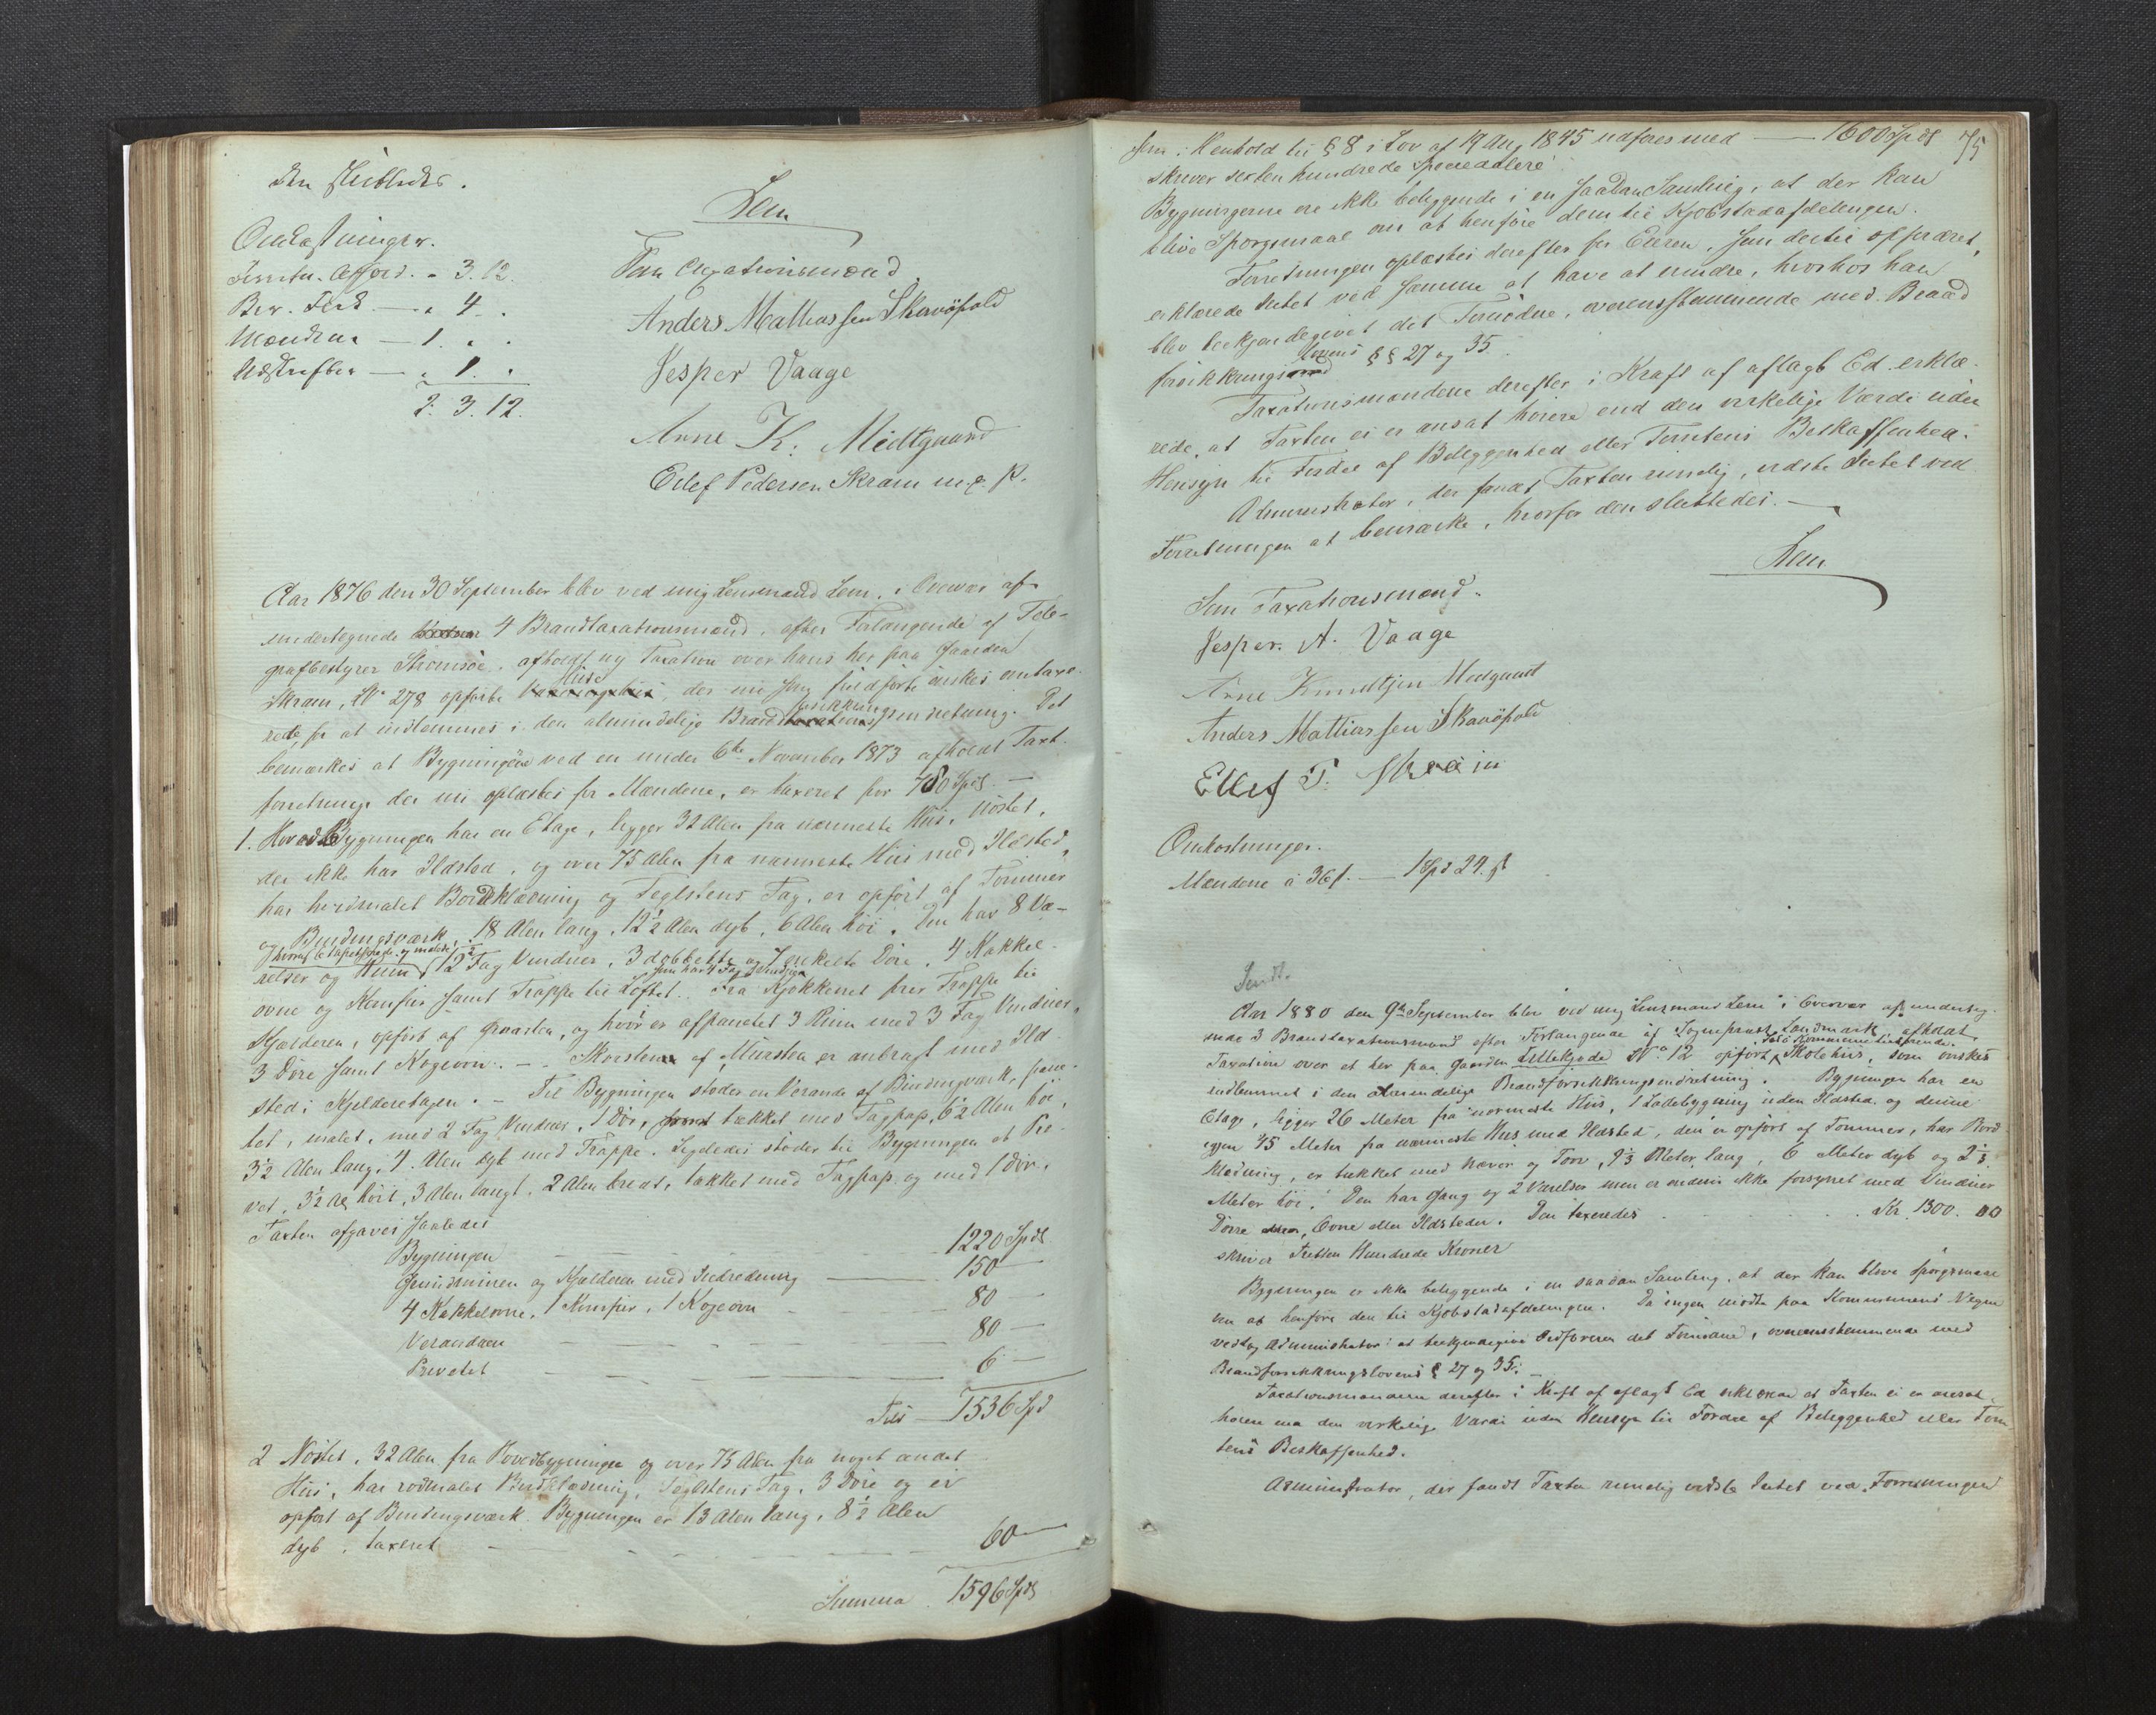 den sluttedes.
Lem
Omkostninger.
Som Taxationsmænd
3. 12.
4
Anders Mathiassen Skaaöfald
Mændene — 1. „ .
Jesper Vaage
Udskriften — „ 1. „
2. 3. 12.
Arne K. Midtgaard
Ellef Pedersen Skram m. p. P.
Aar 1876 den 30 September blev ved mig Lensmand Lem, i Overvær af
undertegnede 4 Brandtaxationsmænd, efter Forlangende af Tele-
grafbestyrer Strömsöe, afholdt ny Taxation over hans her paa Gaarden
Skram, No 278 opførte Huse, der nu fuldførte ønskes omtaxe-
rede, for at indlemmes i den almindelige Brandforsikkringsindretning. Det
bemærkes at Bygningerne ved en under 6te November 1873 afholdt Taxt-
forretning, der nu oplæstes for Mændene, er taxeret for 780 Spdl. —
1. Hovedbygningen har en Etage, ligger 32 Alen fra nærmeste Hus, Nöstet,
der ikke har Ildsted, og over 75 Alen fra nærmeste Hus med Ildsted,
har hvidmalet Bordklædning og Teglstens Tag, er opført af Tømmer
og Bindingsværk, 18 Alen lang, 12½ Alen dyb, 6 Alen høi. Den har 8 Væ-
hvoraf 6 tapetserede og malede,
relser og 12 Fag Vinduer, 3 dobbelte og 7 enkelte Døre, 4 Kakkel-
ovne og Komfur samt Trappe til Loftet. Fra Kjøkkenet fører Trappe til
Kjælderen, opført af Graasten, og hvor er afpanelet 3 Rum med 3 Fag Vinduer,
3 Døre samt Kogeovn. — Skorsten af Mursten er anbragt med Ild-
sted i Kjælderetagen. — Til Bygningen støder en Veranda af Bindingværk, pane-
let, malet, med 2 Fag Vinduer, 1 Dør, tækket med Tagpap, 6½ Alen høi,
3½ Alen lang, 4 Alen dyb med Trappe. Ligeledes støder til Bygningen et Pri-
vet, 3½ Al høit, 3 Alen langt, 2 Alen bredt, tækket med Tagpap og med 1 Dør.
Taxten afgaves saaledes
Bygningen — 1220 Spdl
Grundmuren og Kjælderen med Indredning — 150 —
4 Kakkelovne, 1 Komfur, 1 Kogeovn — 80 —
Verandaen — 80 —
Privetet — 6 —
Tils — 1536 Spd
2 Nöstet, 32 Alen fra Hovedbygningen og over 75 Alen fra noget andet
Hus, har rødmalet Bordklædning, Teglstens Tag, 3 Døre og er
opført af Bindingsværk. Bygningen er 13 Alen lang, 8½ Alen
dyb, taxeret — 60 —
Summa 1596 Spdl
75
som i Henhold til § 8 i Lov af 19 Aug 1845 udføres med — 1600 Spdl
skriver sexten hundrede Speciedalere
Bygningerne ere ikke beliggende i en saadan Samling, at der kan
blive Spørgsmaal om at henføre dem til Kjøbstadafdelingen.
Forretningen oplæstes derefter for Eieren, som dertil opfordret,
erklærede Intet ved samme at have at erindre, hvorhos han
blev bekjendtgivet det Fornødne, overensstemmende med Brand
forsikkringslovens §§ 27 og 35.
Taxationsmændene derefter i Kraft af aflagt Ed erklæ-
rede, at Taxten ei er ansat høiere end den virkelige Værdi uden
Hensyn til Fordel af Beliggenhed eller Tomtens Beskaffenhed.
Administrator, der fandt Taxten rimelig, vidste Intet ved
Forretningen at bemærke, hvorfor den sluttedes. —
Lem
Som Taxationsmænd.
Jesper. A. Vaage
Arne Knudtsen Medgaard
Anders Mathiassen Skaaöfald
Ellef P. Skram
Omkostninger.
Mændene á 36 s. — 1 Spd 24 s
Sendt.
Aar 1880 den 9de September blev ved mig Lensmand Lem i Overvær af underteg-
nede 3 Brandtaxationsmænd efter Forlangende af Sogneprest Landmark, afholdt
Kommune tilhørende
Taxation over et her paa Gaarden Lillekjøde No 12 opført Skolehus, som ønskes
indlemmet i den almindelige Brandforsikkringsindretning. Bygningen har en
Etage, ligger 26 Meter fra nærmeste Hus, 1 Ladebygning uden Ildsted og denne
igjen 45 Meter fra nærmeste Hus med Ildsted, den er opført af Tømmer, har Bord
klædning, er tækket med Næver og Torv, 9⅓ Meter lang, 6 Meter dyb og 2⅓
Meter høi. Den har Gang og 2 Værelser men er endnu ikke forsynet med Vinduer
Døre, Ovne eller Ildsteder. Den taxeredes Kr. 1300. 00
skriver Tretten Hundrede Kroner
Bygningen er ikke beliggende i en saadan Samling, at der kan blive Spørgsmaal
om at henføre den til Kjøbstadafdelingen. Da ingen mødte paa Kommunens Vegne
vedtog Administrator at bekjendtgive det Fornødne, overensstemmende med
Brandforsikkringslovens § 27 og 35. —
Taxationsmændene derefter i Kraft af aflagt Ed erklærede at Taxten ei er ansat
høiere end den virkelige Værdi uden Hensyn til Fordel af Beliggenhed eller Tom
tens Beskaffenhed.
Administrator, der fandt Taxten rimelig vidste Intet ved Forretningen